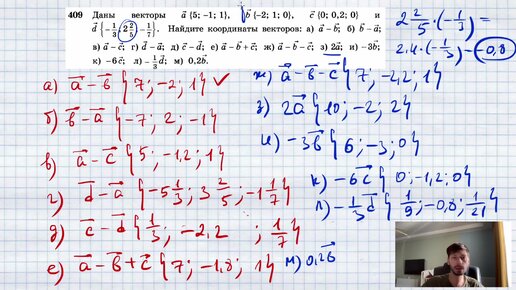 409 Даны векторы a⃗ {5; −1; 1}, b⃗ {−2; 1; 0}, c⃗ {0; 0,2; 0} и
d⃗ {−1/3; 2 2/5; −1/7}. Найдите координаты векторов: а) a⃗ − b⃗; б) b⃗ − a⃗;
в) a⃗ − c⃗; г) d⃗ − a⃗; д) c⃗ − d⃗; е) a⃗ − b⃗ + c⃗; ж) a⃗ − b⃗ − c⃗; з) 2a⃗; и) −3b⃗;
к) −6c⃗; л) −1/3 d⃗; м) 0,2b⃗.
2 2/5 · (−1/3) =
2,4 · (−1/3) = −0,8
а) a⃗ − b⃗ {7; −2; 1} ✓
б) b⃗ − a⃗ {−7; 2; −1}
в) a⃗ − c⃗ {5; −1,2; 1}
г) d⃗ − a⃗ {−5 1/3; 3 2/5; −1 1/7}
д) c⃗ − d⃗ {1/3; −2,2 ; 1/7}
е) a⃗ − b⃗ + c⃗ {7; −1,8; 1}
ж) a⃗ − b⃗ − c⃗ {7; −2,2; 1}
з) 2a⃗ {10; −2; 2}
и) −3b⃗ {6; −3; 0}
к) −6c⃗ {0; −1,2; 0}
л) −1/3 d⃗ {1/9; −0,8; 1/21}
м) 0,2b⃗